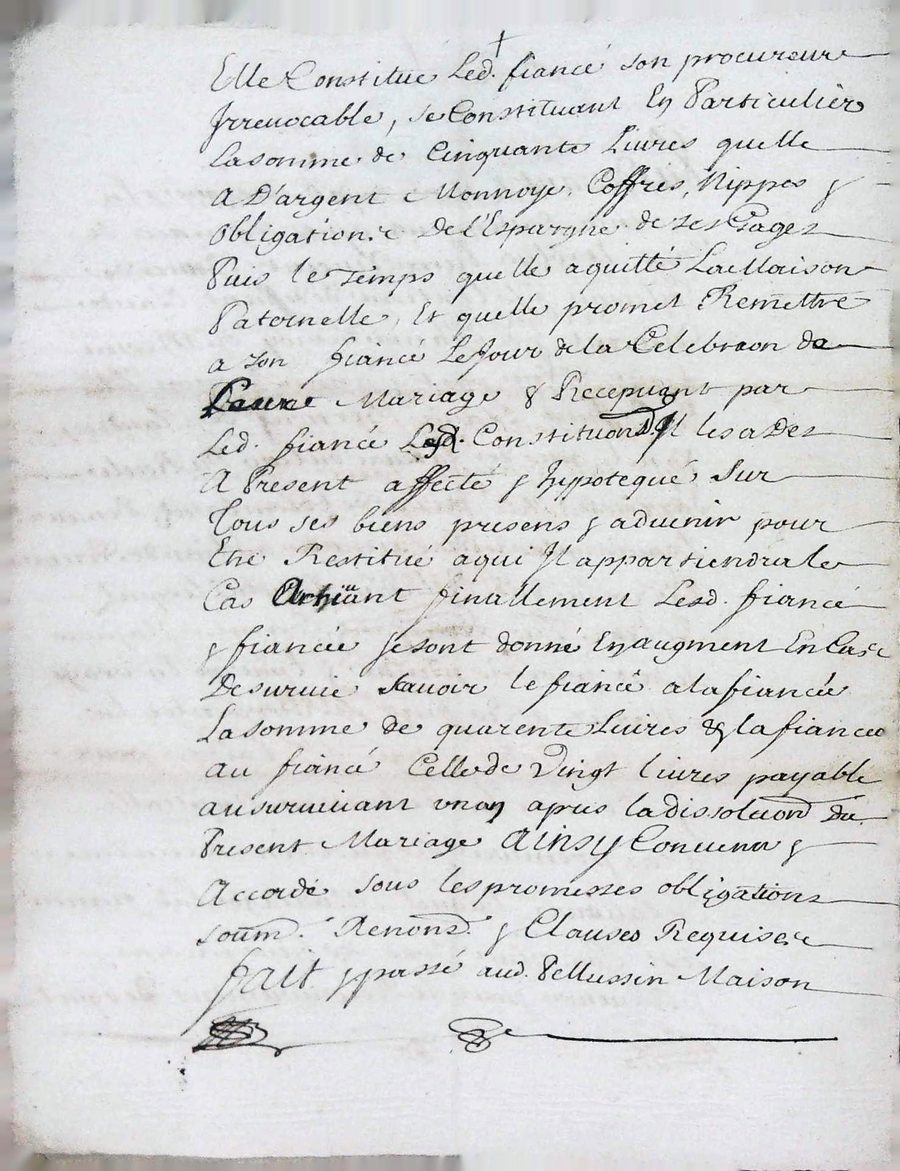 Elle Constitue Led. fiancé son procureur
Irrevocable, se Constituant En Particulier
La somme de Cinquante Livres quelle
A D'argent Monnoye, Coffres, Nippes &
Obligation.s De L'Espargne de ses Gages
Puis le Temps quelle a quitté La Maison
Paternelle, Et quelle promet Remettre
a son fiancé Le Jour de la Celebraon de
Leur Mariage & Recepvant par
Led. fiancé Lesd. Constituons. Il les a Des
A Present affecté & hypotequé Sur
Tous ses biens presens & advenir pour
Etre Restitué a qui Il appartiendra le
Cas finallement Lesd. fiancé
& fiancée se sont donné En augment En Cas
De survie savoir le fiancé a la fiancée
La somme de quarente Livres & la fiancée
au fiancé Celle de Vingt livres payable
au survivant un an apres la dissoluon du
Present Mariage Ainsy Convenu &
Accordé sous les promesses obligations
soum. Renons. & Clauses Requises
fait & passé aud. Pellussin Maison